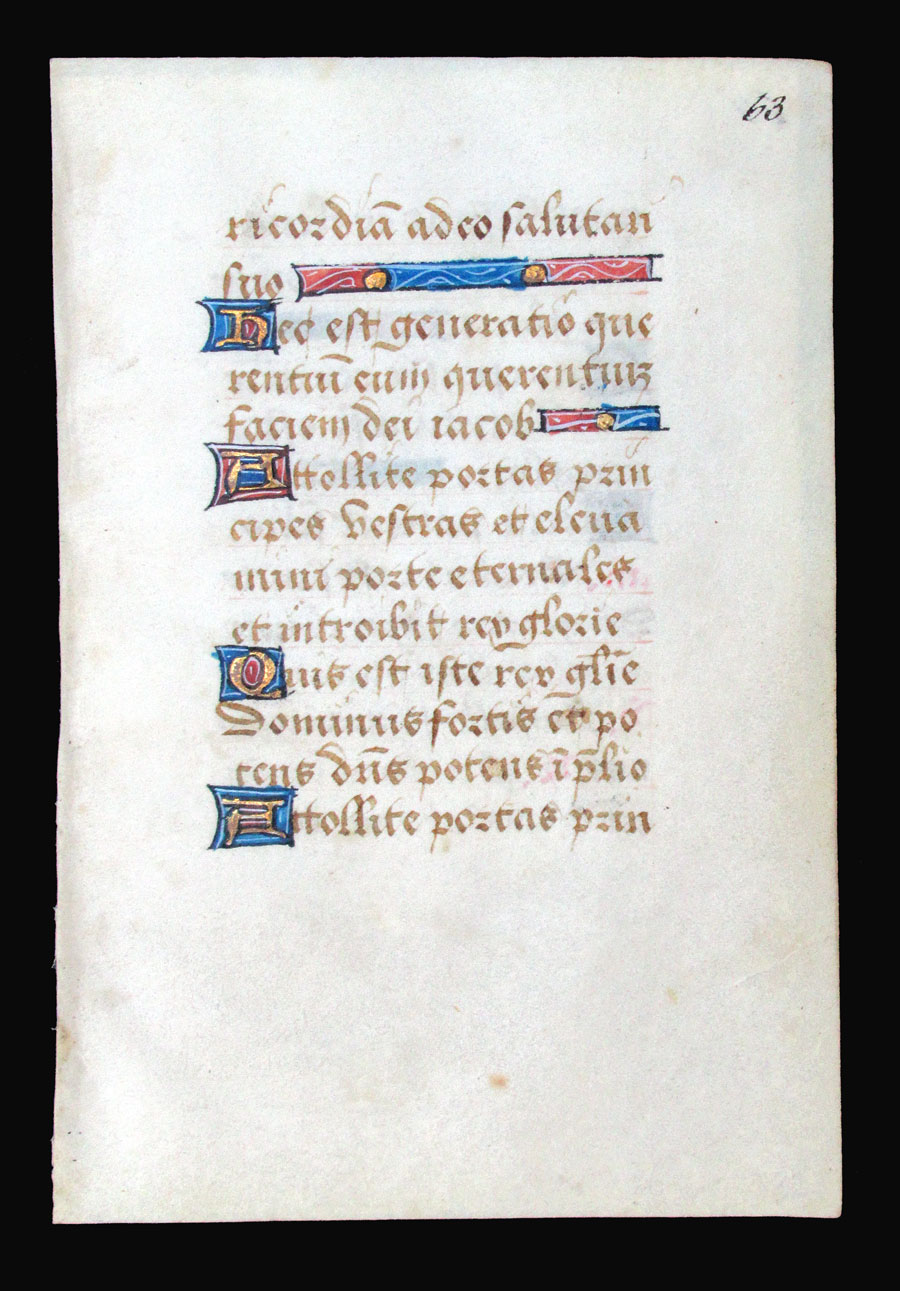 63
ricordiā adeo salutari
suo
Hec est generatio que
rentiū eum querentium
faciem dei iacob
Attollite portas prin
cipes vestras et eleua
mini porte eternales
et introibit rex glorie
Quis est iste rex glīe
Dominus fortis et po
tens dn̄s potens ī p̄lio
Attollite portas prin